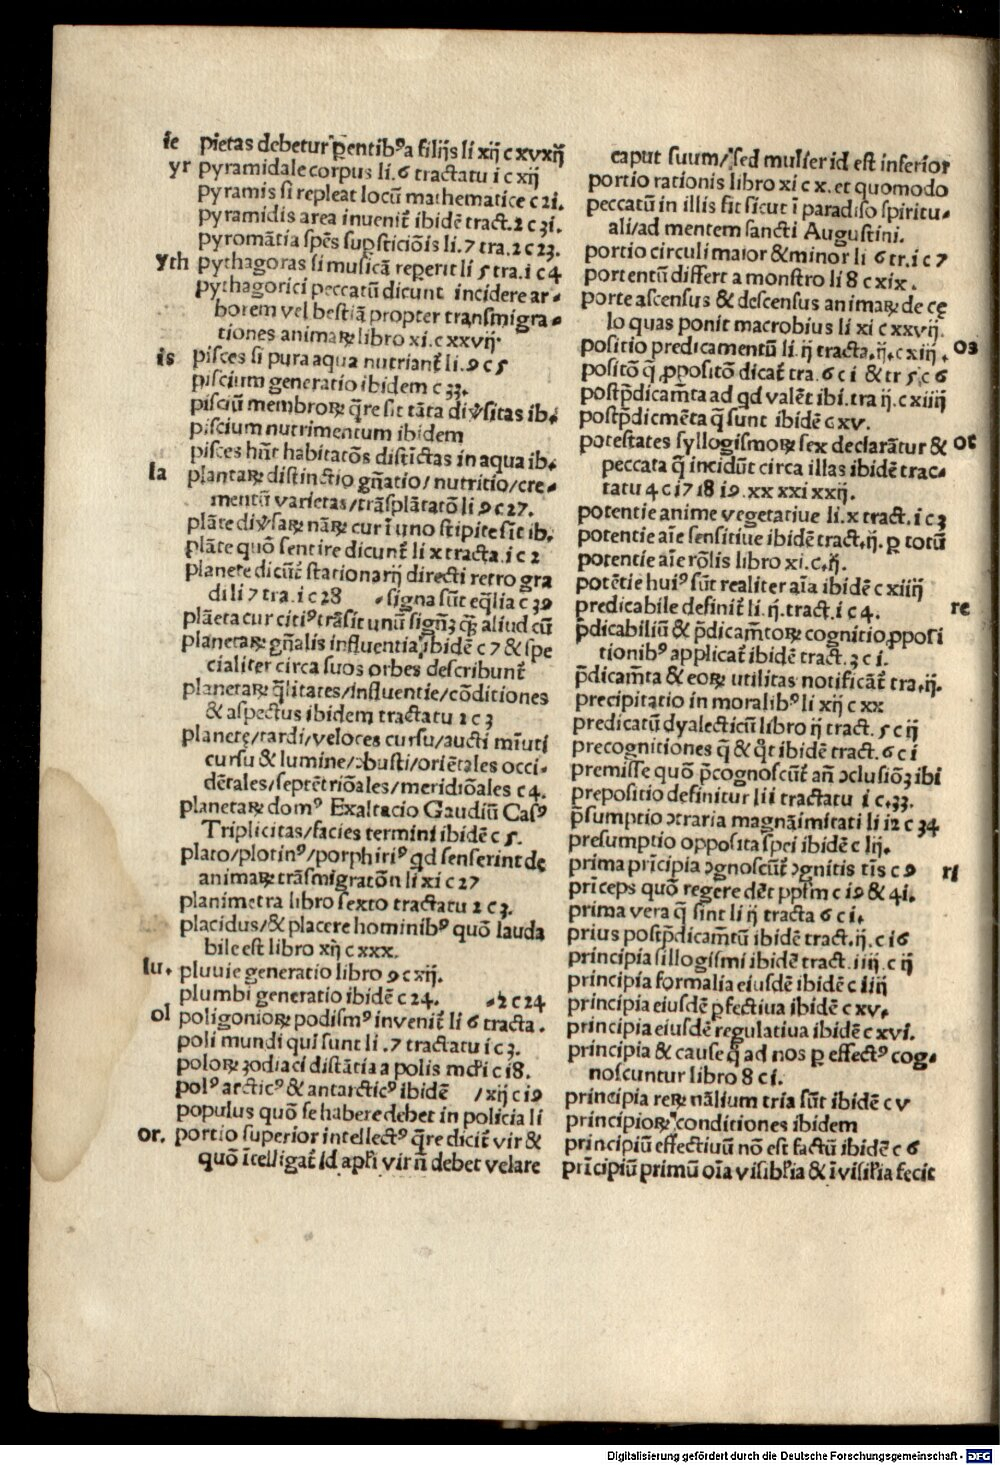 ie pietas debetur p̲entibꝰ a filijs li xij c xvxij
yr pyramidale corpus li. 6 tractatu i c xij
pyramis si repleat locū mathematice c 2i.
pyramidis area invenit᷑ ibidē tract. 2 c 3i.
pyromātia spēs suꝑsticiōis li. 7 tra. 2 c 23.
yth pythagoras si musicā reperit li 5 tra. i c 4
pythagorici peccatū dicunt incidere ar-
borem vel bestiā propter transmigra-
tiones animaꝝ libro xi. c xxvij.
is pisces si pura aqua nutriant᷑ li. 9 c 5
piscium generatio ibidem c 33.
pisciū membroꝝ q̄re sit tāta div̓sitas ib.
piscium nutrimentum ibidem
pisces hn̄t habitatōs distīctas in aqua ib.
la plantaꝝ distinctio gn̄atio/ nutritio/ cre-
mentū varietas/ trāsplātatō li 9 c 27.
plāte div̓saꝝ nāꝝ cur ī uno stipite sīt ib.
plāte quō sentire dicunt᷑ li x tracta. i c 2
planete dicūt᷑ stationarij directi retro gra
di li 7 tra. i c 28 -signa sūt eq̄lia c 39
plāeta cur citiꝰ trāsit unū signꝫ qꝫ aliud cū
planetaꝝ gn̄alis influentia ibidē c 7 & spe
cialiter circa suos orbes describunt᷑
planetaꝝ q̄litates/ influentie/ cōditiones
& aspectus ibidem tractatu 2 c 3
planetę/ tardi/ veloces cursu/ aucti mīuti
cursu & lumine/ ↄbusti/ oriētales occi-
dētales/ septētriōales/ meridiōales c 4.
planetaꝝ domꝰ Exaltacio Gaudiū Casꝰ
Triplicitas/ facies termini ibidē c 5.
plato/ plotinꝰ/ porphiriꝰ qd senserint de
animaꝝ trāsmigratōn li xi c 27
planimetra libro sexto tractatu 2 c 3.
placidus/ & placere hominibꝰ quō lauda
bile est libro xij c xxx.
lu. pluuie generatio libro 9 c xij.
plumbi generatio ibidē c 24. -2 c 24
ol poligonioꝝ podismꝰ invenit᷑ li 6 tracta.
poli mundi qui sunt li. 7 tractatu i c 3.
poloꝝ zodiaci distātia a polis mdi c i8.
polꝰ arcticꝰ & antarcticꝰ ibidē / xij c i9
populus quō se habere debet in policia li
or. portio superior intellectꝰ q̄re dicit᷑ vir &
quō ītelligat᷑ id apłi vir n̄ debet velare
caput suum/ sed mulier id est inferior
portio rationis libro xi c x. et quomodo
peccatū in illis fit sicut ī paradiso spiritu-
ali/ ad mentem sancti Augustini.
portio circuli maior & minor li 6 tr. i c 7
portentū differt a monstro li 8 c xix.
porte ascensus & descensus animaꝝ de cę
lo quas ponit macrobius li xi c xxvij.
positio predicamentū li. ij tracta. ij. c xiij. os
positō q̄ ꝓpositō dicat᷑ tra. 6 c i & tr 5 c 6
postp̄dicam̄ta ad qd valēt ibi. tra ij. c xiiij
postp̄dicmēta q̄ sunt ibidē c xv.
potestates syllogismoꝝ sex declarātur & ot
peccata q̄ incidūt circa illas ibidē trac-
tatu 4 c i7 i8 i9. xx xxi xxij.
potentie anime vegetatiue li. x tract. i c 3
potentie aīe sensitiue ibidē tract. ij. ꝑ totū
potentie aīe rōlis libro xi. c. ij.
potētie huiꝰ sūt realiter aīa ibidē c xiiij
predicabile definit᷑ li. ij. tract. i c 4. re
p̄dicabiliū & p̄dicam̄toꝝ cognitio ꝓposi
tionibꝰ applicat᷑ ibidē tract. 3 c i.
p̄dicam̄ta & eoꝝ utilitas notificāt᷑ tra. ij.
precipitatio in moralibꝰ li xij c xx
predicatū dyalecticū libro ij tract. 5 c ij
precognitiones q̄ & q̊t ibidē tract. 6 c i
premisse quō p̄cognoscūt᷑ an̄ ↄclusiōꝫ ibi
prepositio definitur li i tractatu i c. 33.
p̄sumptio ↄtraria magnāimitati li i2 c 34
presumptio opposita spei ibidē c lij.
prima prīcipia ↄgnoscūt᷑ ↄgnitis tīs c 9 ri
prīceps quō regere dēt ppłm c i9 & 4i.
prima vera q̄ sint li ij tracta 6 c i.
prius postp̄dicam̄tū ibidē tract. ij. c i6
principia sillogismi ibidē tract. iiij. c ij
principia formalia eiusdē ibidē c iiij
principia eiusdē ꝑfectiua ibidē c xv.
principia eiusdē regulatiua ibidē c xvi.
principia & cause q̄ ad nos ꝑ effectꝰ cog-
noscuntur libro 8 c i.
principia reꝝ nālium tria sūt ibidē c v
principioꝝ conditiones ibidem
principiū effectiuū nō est factū ibidē c 6
prīcipiū primū oīa visibłia & īvisiłia fecit
Digitalisierung gefördert durch die Deutsche Forschungsgemeinschaft - DFG